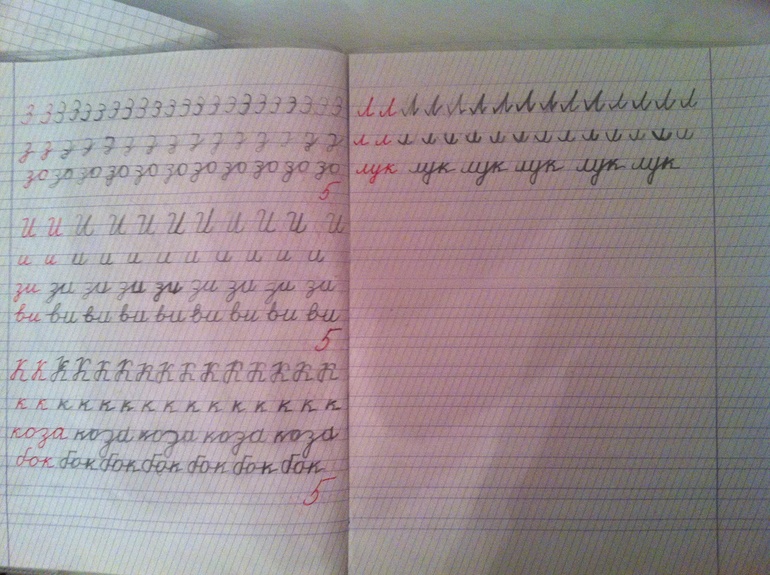 З З З З З З З З З З З З З З З З З З З З З
з з з з з з з з з з з з з з
зо зо зо зо зо зо зо зо зо зо зо
5
И И И И И И И И И И И
и и и и и и и и и и и
зи зи зи зи зи зи зи зи зи
ви ви ви ви ви ви ви ви ви
5
К К К К К К К К К К К К К К К
к к к к к к к к к к к к к к к
коза коза коза коза коза
бок бок бок бок бок бок бок
5
Л Л Л Л Л Л Л Л Л Л Л Л Л Л Л
л л л л л л л л л л л л л л л
лук лук лук лук лук лук